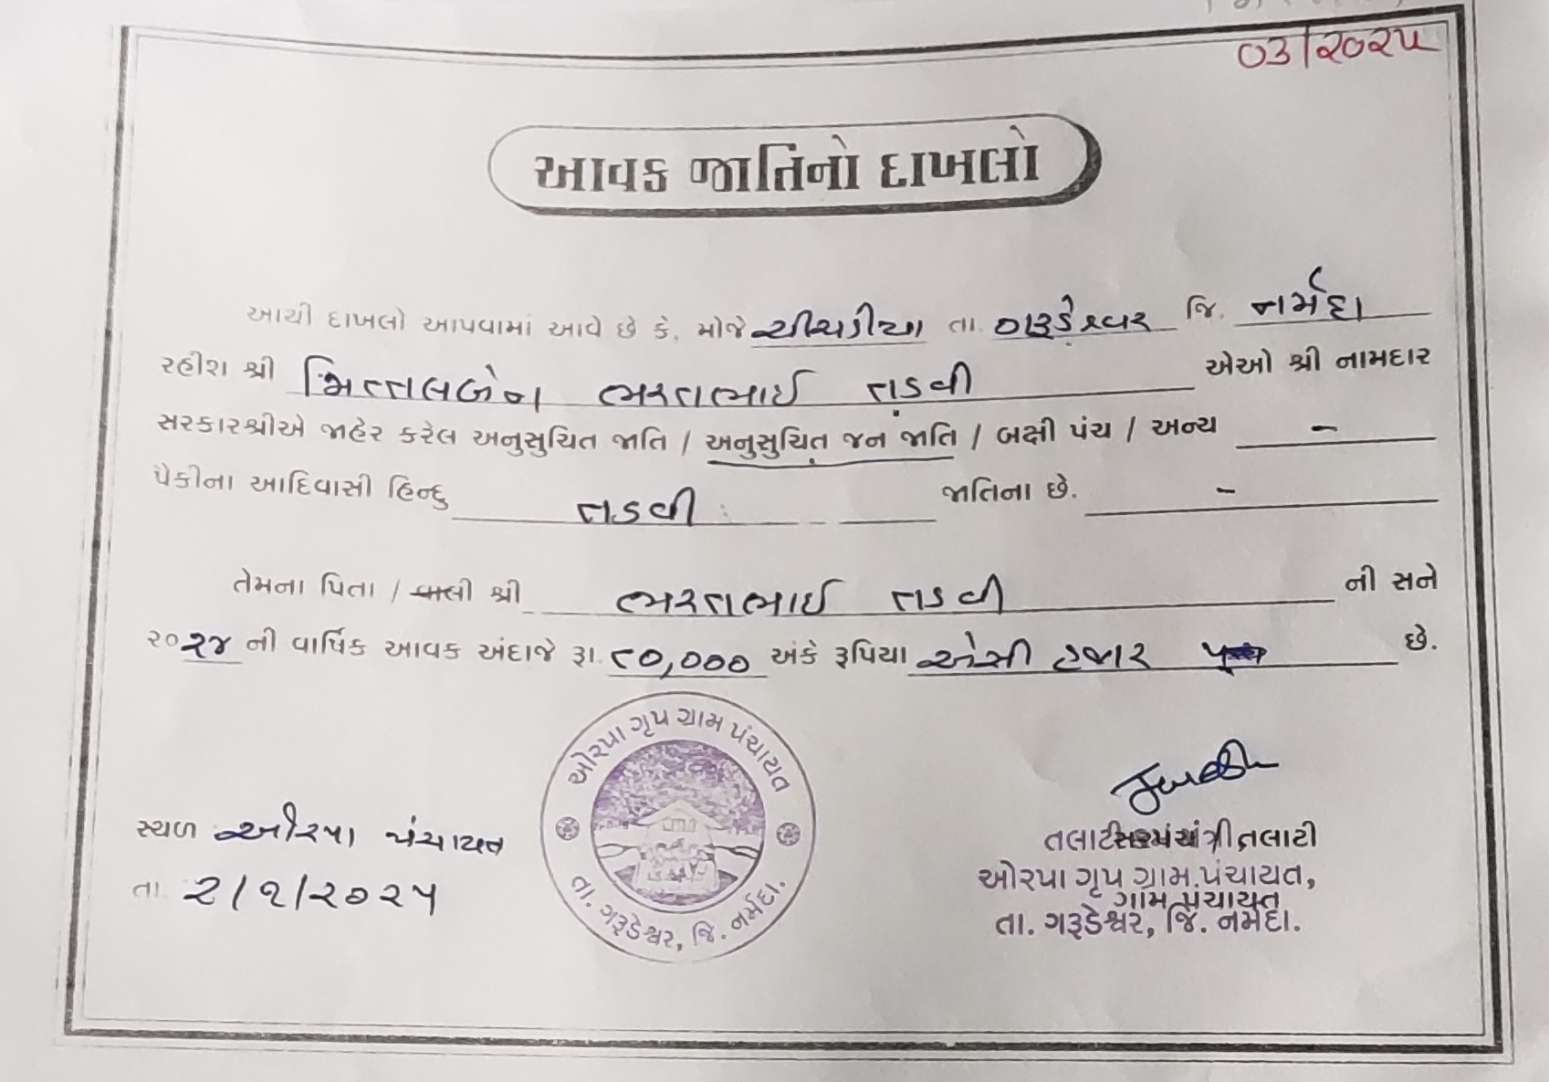 ૦૩/૨૦૨૫
આવક જાતિનો દાખલો
આથી દાખલો આપવામાં આવે છે કે, મોજે ચીચડીયા તા. ગરૂડેશ્વર જિ. નર્મદા
રહીશ શ્રી મિત્તલબેન ભરતભાઈ તડવી એઓ શ્રી નામદાર
સરકારશ્રીએ જાહેર કરેલ અનુસુચિત જાતિ / અનુસુચિત જન જાતિ / બક્ષી પંચ / અન્ય -
પૈકીના આદિવાસી હિન્દુ તડવી જાતિના છે. -
તેમના પિતા / વાલી શ્રી ભરતભાઈ તડવી ની સને
૨૦૨૪ ની વાર્ષિક આવક અંદાજે રૂા. ૮૦,૦૦૦ અંકે રૂપિયા એંસી હજાર છે.
ઓરપા ગૃપ ગ્રામ પંચાયત
તા. ગરૂડેશ્વર, જિ. નર્મદા.
સ્થળ ઓરપા પંચાયત
તા. ૨/૧/૨૦૨૫
ઓરપા ગૃપ ગ્રામ પંચાયત,
ગામ પંચાયત
તા. ગરૂડેશ્વર, જિ. નર્મદા.